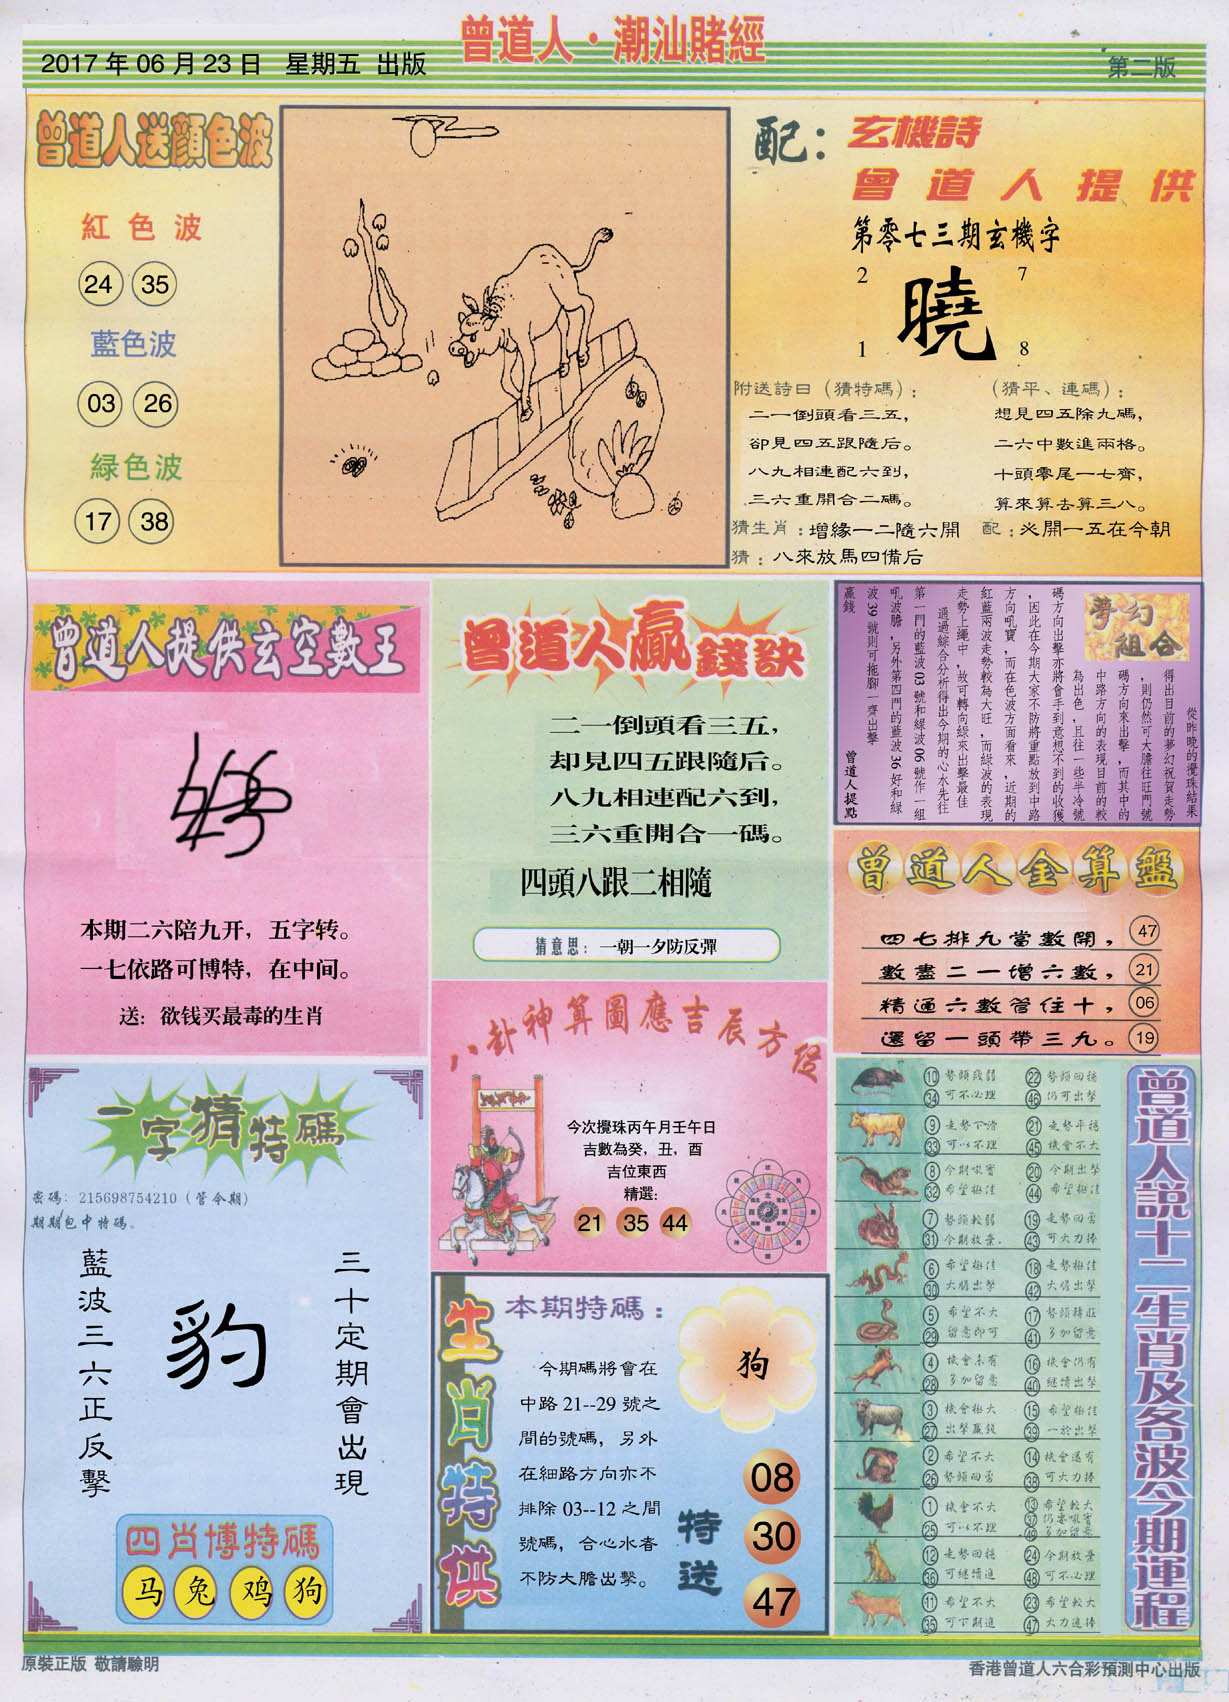 曾道人·潮汕賭經
2017 年 06 月 23 日 星期五 出版
第二版
曾道人送顏色波
紅色波
24 35
藍色波
03 26
緑色波
17 38
配：玄機詩
曾道人提供
第零七三期玄機字
2 7
曉
1 8
附送詩曰（猜特碼）：
二一倒頭看三五，
卻見四五跟隨后。
八九相連配六到，
三六重開合二碼。
（猜平、連碼）：
想見四五除九碼，
二六中數進兩格。
十頭零尾一七齊，
算來算去算三八。
猜生肖：增緣一二隨六開 配：必開一五在今朝
猜：八來放馬四備后
曾道人提供玄空數王
本期二六陪九开，五字转。
一七依路可博特，在中间。
送：欲钱买最毒的生肖
曾道人贏錢訣
二一倒頭看三五，
却見四五跟隨后。
八九相連配六到，
三六重開合一碼。
四頭八跟二相隨
猜意思：一朝一夕防反彈
夢幻組合
從昨晚的攪珠結果
得出目前的夢幻祝賀走勢
，則仍然可大膽往旺門號
碼方向來出擊，而其中的
中路方向的表現目前的較
為出色，且往一些半冷號
碼方向出擊亦將會手到意想不到的收獲
，因此在今期大家不防將重點放到中路
方向吼寶，而在色波方面看來，近期的
紅藍兩波走勢較為大旺，而綠波的表現
走勢上繩中，故可轉向綠來出擊最佳
通過綜合分析得出今期的心水先往
第一門的藍波 03 號和綠波 06 號作一組
吼波膽，另外第四門的藍波 36 好和綠
波 39 號則可拖腳一齊出擊
贏錢
曾道人提點
曾道人金算盤
四七排九當數開， 47
數盡二一增六數， 21
精通六數管住十， 06
還留一頭帶三九。 19
八卦神算圖應吉辰方位
今次攪珠丙午月壬午日
吉數為癸，丑，酉
吉位東西
精選:
21 35 44
一字猜特碼
密碼：215698754210（管今期）
期期包中特碼。
藍波三六正反擊
豹
三十定期會出現
四肖博特碼
马 兔 鸡 狗
生肖特供
本期特碼：
狗
今期碼將會在
中路 21--29 號之
間的號碼，另外
在細路方向亦不
排除 03--12 之間
號碼，合心水者
不防大膽出擊。
特送
08
30
47
曾道人說十二生肖及各波今期運程
10 勢頭殘弱 22 勢頭回穩
34 可不必理 46 仍可出擊
9 走勢下滑 21 走勢平穩
33 可以不理 45 機會不大
8 今期吼寶 20 今期出擊
32 希望極佳 44 希望極佳
7 勢頭較弱 19 走勢回勇
31 今期放棄. 43 可大力捧
6 希望極佳 18 走勢極佳
30 大膽出擊 42 大膽出擊
5 希望不大 17 勢頭轉旺
29 留意即可 41 多加留意
4 機會未有 16 機會仍有
28 多加留意 40 繼續出擊
3 機會極大 15 希望極佳
27 出擊贏錢 39 一於出擊
2 希望不大 14 機會還有
26 勢頭回勇 38 可大力捧
1 機會不大 13 希望較大
25 可以不理 37 仍要吼實
49 多加留意
12 走勢回穩 24 今期放棄
36 可繼續追 48 可不必理
11 希望不大 23 希望較大
35 可下期進 47 大力進捧
原裝正版 敬請驗明
香港曾道人六合彩預測中心出版